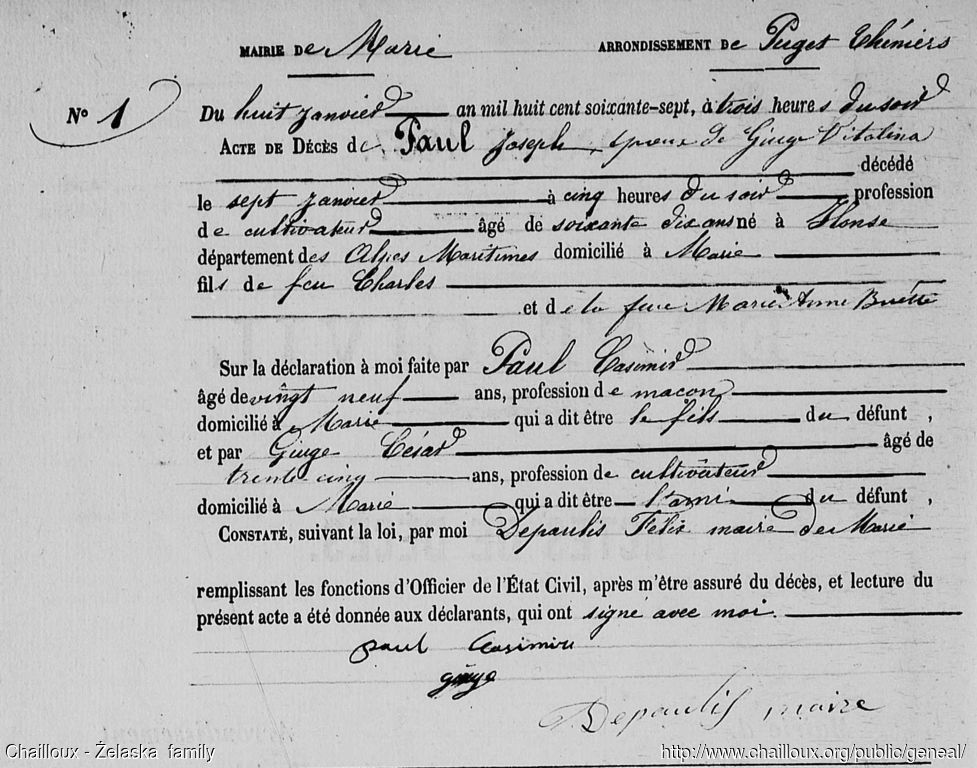 MAIRIE DE Marie ARRONDISSEMENT DE Puget Théniers
N° 1 Du huit janvier an mil huit cent soixante-sept, à trois heures du soir
ACTE DE DÉCÈS de Paul Joseph, époux de Giuge Vitalina
décédé
le sept janvier à cinq heures du soir profession
de cultivateur âgé de soixante dix ans né à Ilonse
département des Alpes Maritimes domicilié à Marie
fils de feu Charles
et de la feue Marie Anne
Sur la déclaration à moi faite par Paul Casimir
âgé de vingt neuf ans, profession de macon
domicilié à Marie qui a dit être le fils du défunt,
et par Giuge César âgé de
trente cinq ans, profession de cultivateur
domicilié à Marie qui a dit être l'ami du défunt,
CONSTATÉ, suivant la loi, par moi Depaulis Felix maire de Marie
remplissant les fonctions d'Officier de l'État Civil, après m'être assuré du décès, et lecture du
présent acte a été donnée aux déclarants, qui ont signé avec moi.
paul Casimir
giuge
Depaulis maire
Chailloux - Želaska family http://www.chailloux.org/public/geneal/